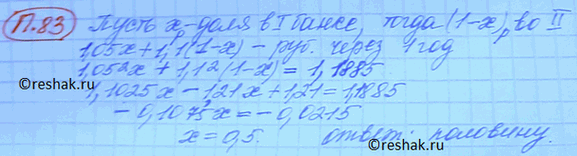 П.83 Пусть x-доля в I банке, тогда (1-x) во II
1,05x+1,1(1-x) - руб. через 1 год
1,05²x+1,1²(1-x)=1,1885
1,1025x-1,21x+1,21=1,1885
-0,1075x=-0,0215
x=0,5. ответ: половину.